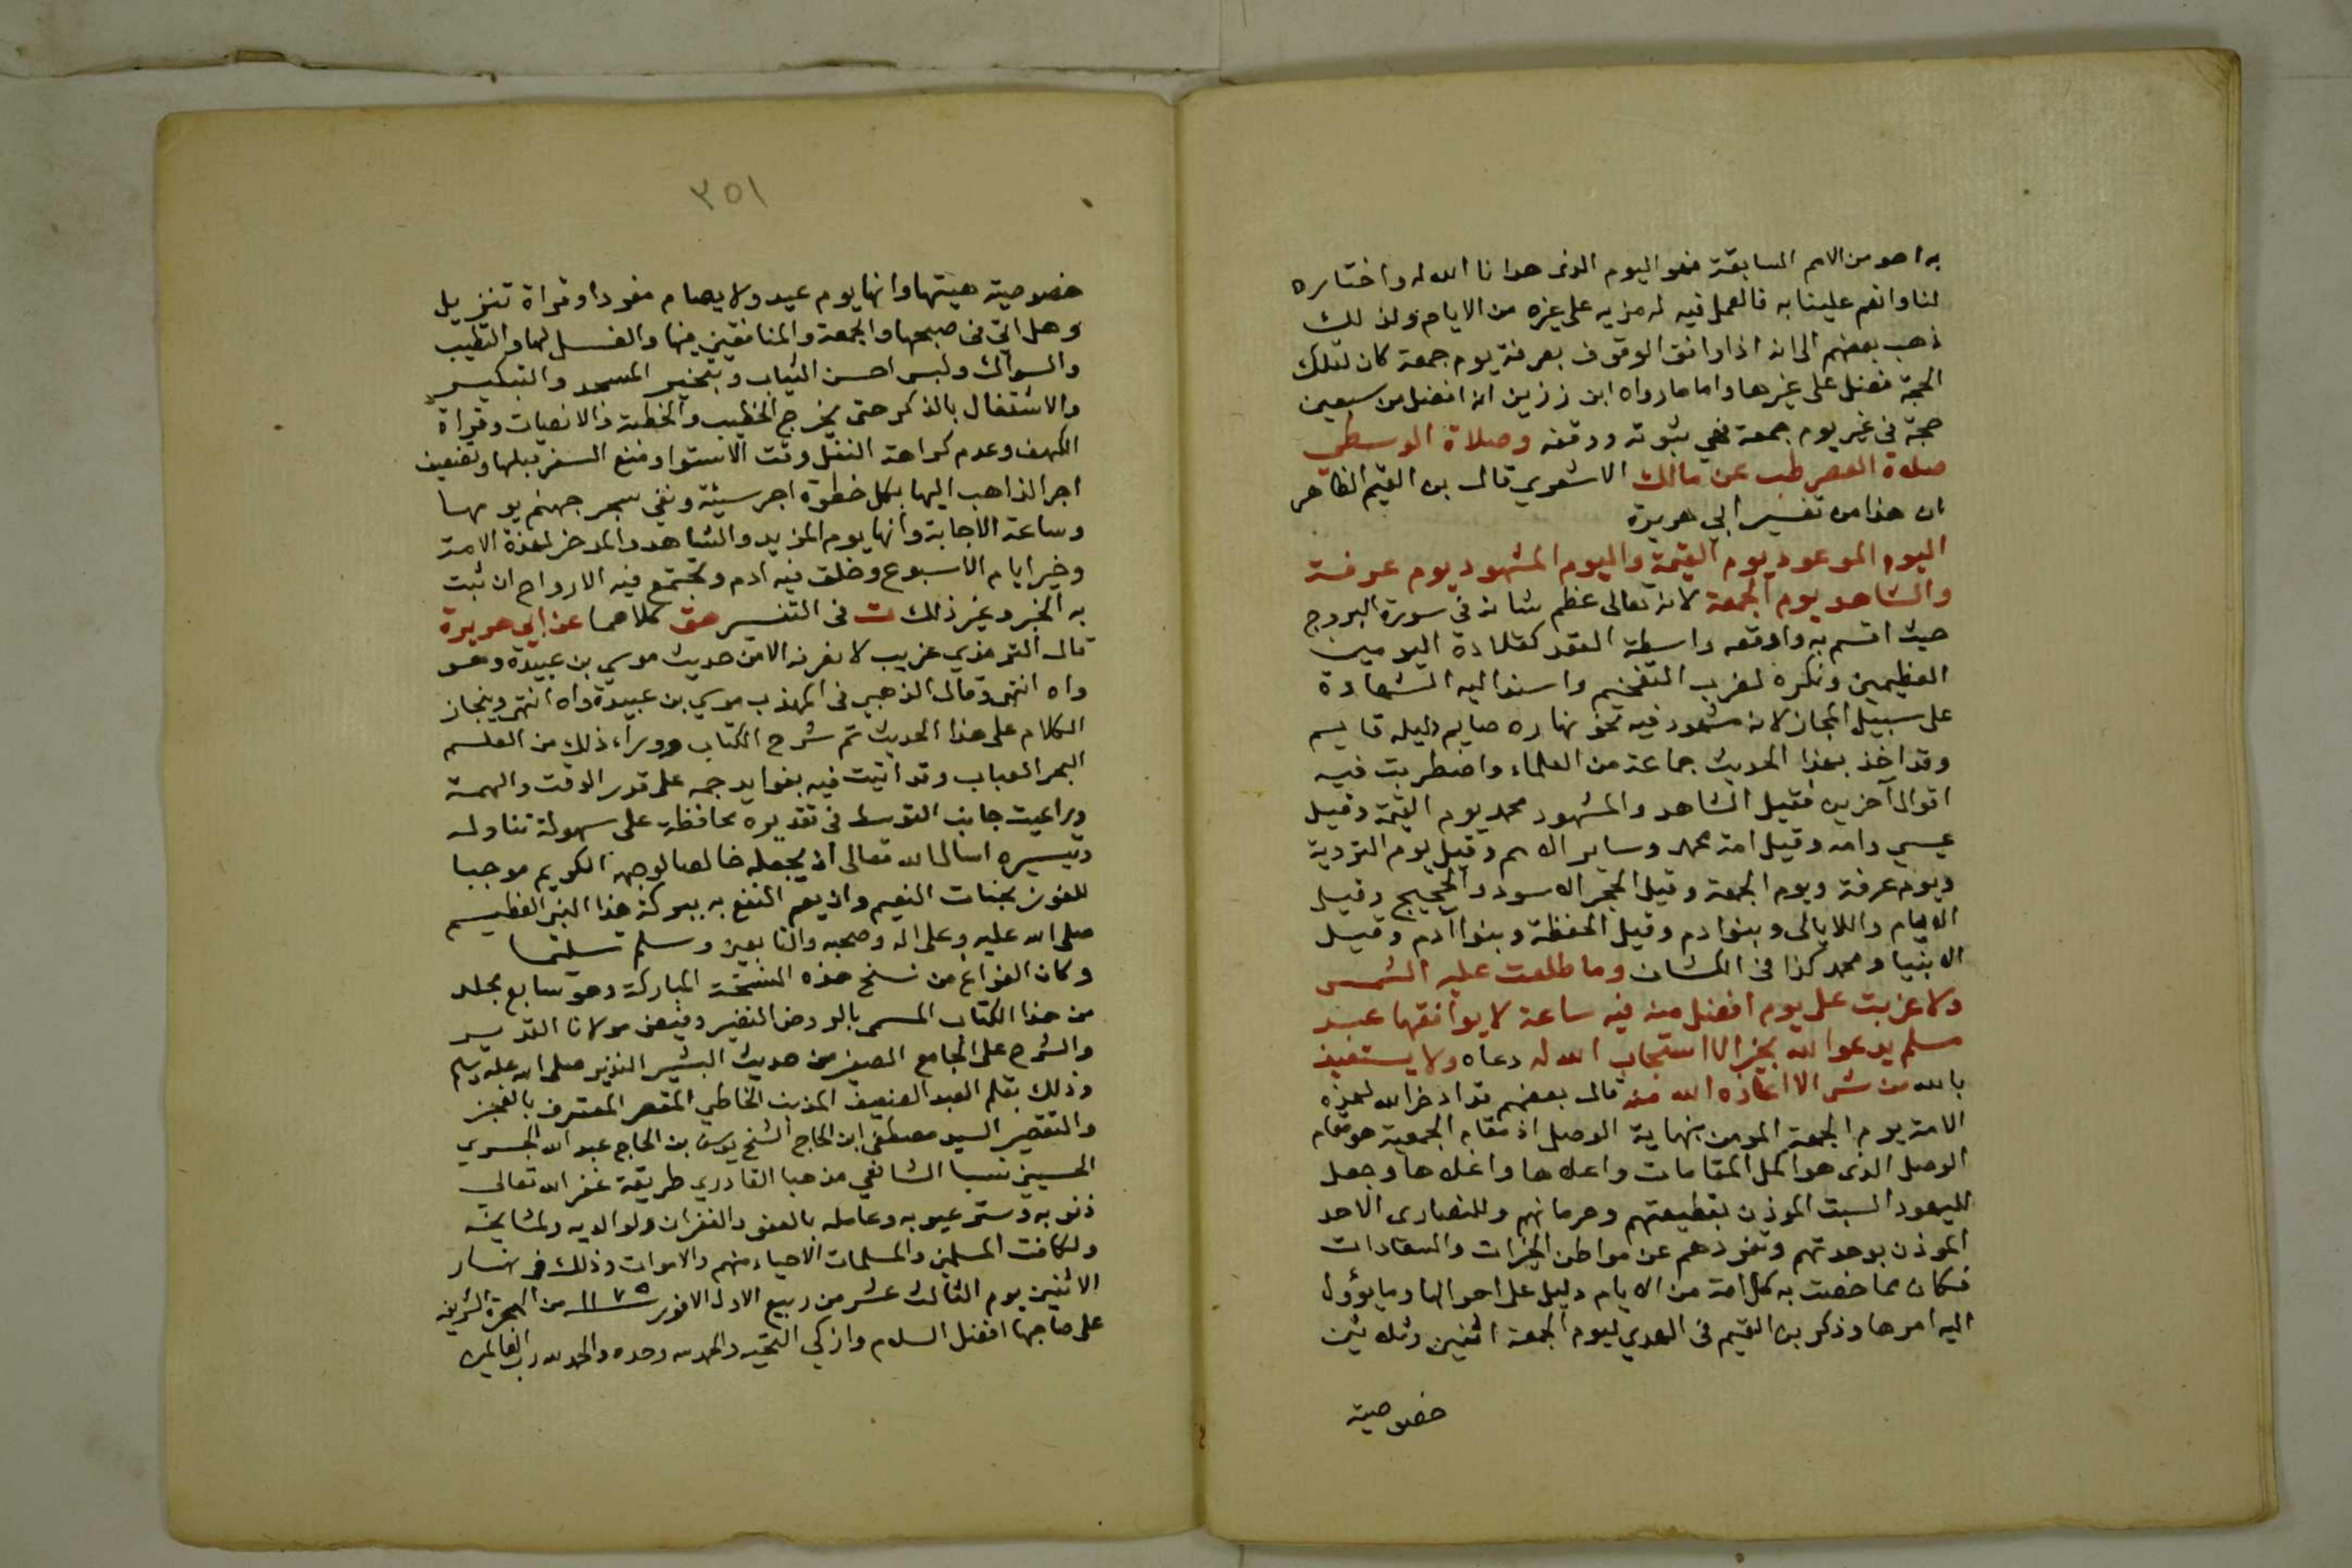 به احد من الامم السابقة فهو اليوم الذى هدانا الله له واختاره
لنا وانعم علينا به فالعمل فيه له مزيه على غيره من الايام ولذلك
ذهب بعضهم الى انه اذا وافق الوقوف بعرفة يوم جمعة كان لتلك
الحجة فضل على غيرها واما ما رواه ابن رزين انه افضل من سبعين
حجة في غير يوم جمعة ففي ثبوته وقفة وصلاة الوسطى
صلاة العصر طب عن مالك الاشعري قال بن القيم الظاهر
ان هذا من تفسير ابي هريرة
اليوم الموعود يوم القيمة واليوم المشهود يوم عرفة
والشاهد يوم الجمعة لانه تعالى عظم شانه في سورة البروج
حيث اقسم به واوقعه واسطة العقد كقلادة اليومين
العظيمين ونكره لضرب التفخيم واسند اليه الشهادة
على سبيل المجاز لانه مشهود فيه نحو نهاره صايم وليله قايم
وقد اخذ بهذا الحديث جماعة من العلماء واضطربت فيه
اقوال آخرين فقيل الشاهد والمشهود محمد يوم القيمة وقيل
عيسى وامه وقيل امة محمد وساير الامم وقيل يوم التروية
ويوم عرفة ويوم الجمعة وقيل الحجر الاسود والحجيج وقيل
الايام واللايالى وبنوادم وقيل الحفظة وبنواادم وقيل
الانبيا ومحمد كذا فى الكشاف وما طلعت عليه الشمس
ولا غربت على يوم افضل منه فيه ساعة لا يوافقها عبد
مسلم يدعوا الله بخير الا استجاب الله له دعاه ولا يستعيذ
بالله من شر الا اعاذه الله منه قال بعضهم قد ادخر الله لهذه
الامة يوم الجمعة المومن بنهاية الوصل اذ مقام الجمعية هو مقام
الوصل الذى هو اكمل المقامات واعلاها واغلاها وجعل
لليهود السبت الموذن بقطيعتهم وحرمانهم وللنصارى الاحد
الموذن بوحدتهم وتفردهم عن مواطن الخيرات والسعادات
فكان مما خصت به كل امة من الايام دليل على احوالها وما يؤول
اليه امرها وذكر بن القيم فى الهدي ليوم الجمعة اثنين وثلاثين
خصوصية
٣٥١
خصوصية هيئتها وانها يوم عيد ولا يصام مفردا وقراة تنزيل
وهل اتى فى صبحها والجمعة والمنافقين فيها والغسل لها والتطيب
والسواك ولبس احسن الثياب وتبخير المسجد والتبكير
والاشتغال بالذكر حتى يخرج الخطيب والخطبة والانصات وقراة
الكهف وعدم كراهة النفل وقت الاستوا ومنع السفر قبلها وتضعيف
اجر الذاهب اليها بكل خطوة اجر سنة ونفي سجر جهنم يومها
وساعة الاجابة وانها يوم المزيد والشاهد والمدخر لهذة الامة
وخير ايام الاسبوع وخلق فيه ادم وتجتمع فيه الارواح ان ثبت
به الخبر وغير ذلك ت فى التفسير هق كلاهما عن ابي هريرة
قال الترمذي غريب لا نعرفه الا من حديث موسي بن عبيدة وهو
واه انتهى وقال الذهبي فى المهذب موسي بن عبيدة واه انتهى وبنجاز
الكلام على هذا الحديث تم شرح الكتاب ووراء ذلك من العلم
البحر العباب وقد اتيت فيه بفوايد جمه على قدر الوقت والهمة
وراعيت جانب التوسط فى تقديره محافظة على سهولة تناوله
وتيسيره اسال الله تعالى ان يجعله خالصا لوجهه الكريم موجبا
للفوز بجنات النعيم وان يعم النفع به ببركة هذا النبى العظيم
صلى الله عليه وعلى اله وصحبه والتابعين وسلم تسليما
وكان الفراغ من نسخ هذه النسخة المباركة وهو سابع مجلد
من هذا الكتاب المسمى بالروض النضير وفيض مولانا القدير
والشرح على الجامع الصغير من حديث البشير النذير صلى الله عليه وسلم
وذلك بقلم العبد الضعيف المذنب الخاطي المقصر المعترف بالعجز
والتقصير السيد مصطفى ابن الحاج الشيخ يوسف بن الحاج عبد الله الجسري
الحسيني نسبا الشافعي مذهبا القادري طريقة غفر الله تعالى
ذنوبه وستر عيوبه وعامله بالعفو والغفران ولوالديه ولمشايخه
ولكافت المسلمين والمسلمات الاحياء منهم والاموات وذلك فى نهار
الاثنين يوم الثالث عشر من ربيع الاول الانور سنة ١١٧٥ من الهجرة الشريفه
على صاحبها افضل السلام وازكي التحية والحمد لله وحده والحمد لله رب العالمين